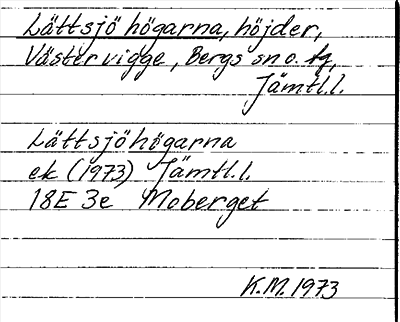 Lättsjöhögarna, höjder,
Västervigge, Bergs sn o. tg,
Jämtl.l.
Lättsjöhögarna
ek (1973) Jämtl.l.
18E 3e Moberget
K.M. 1973